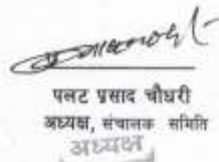 पलट प्रसाद चौधरी
अध्यक्ष, संचालक समिति
अध्यक्ष